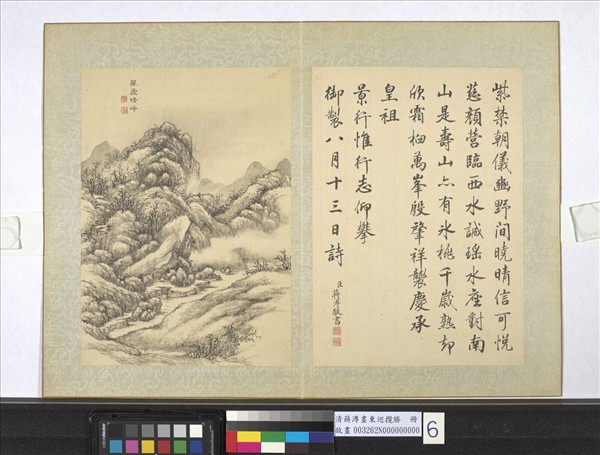 紫禁朝儀幽野間曉晴信可悅
慈顏營臨西水誠瑤水座對南
山是壽山亦有氷桃千歲熟却
欣霜柚萬峯殷肇祥襲慶承
皇祖
景行惟行志仰攀
御製八月十三日詩
臣蔣溥敬書
萬慶晴峰
清蔣溥畫東巡攬勝 冊
故畫 003262N000000000
6